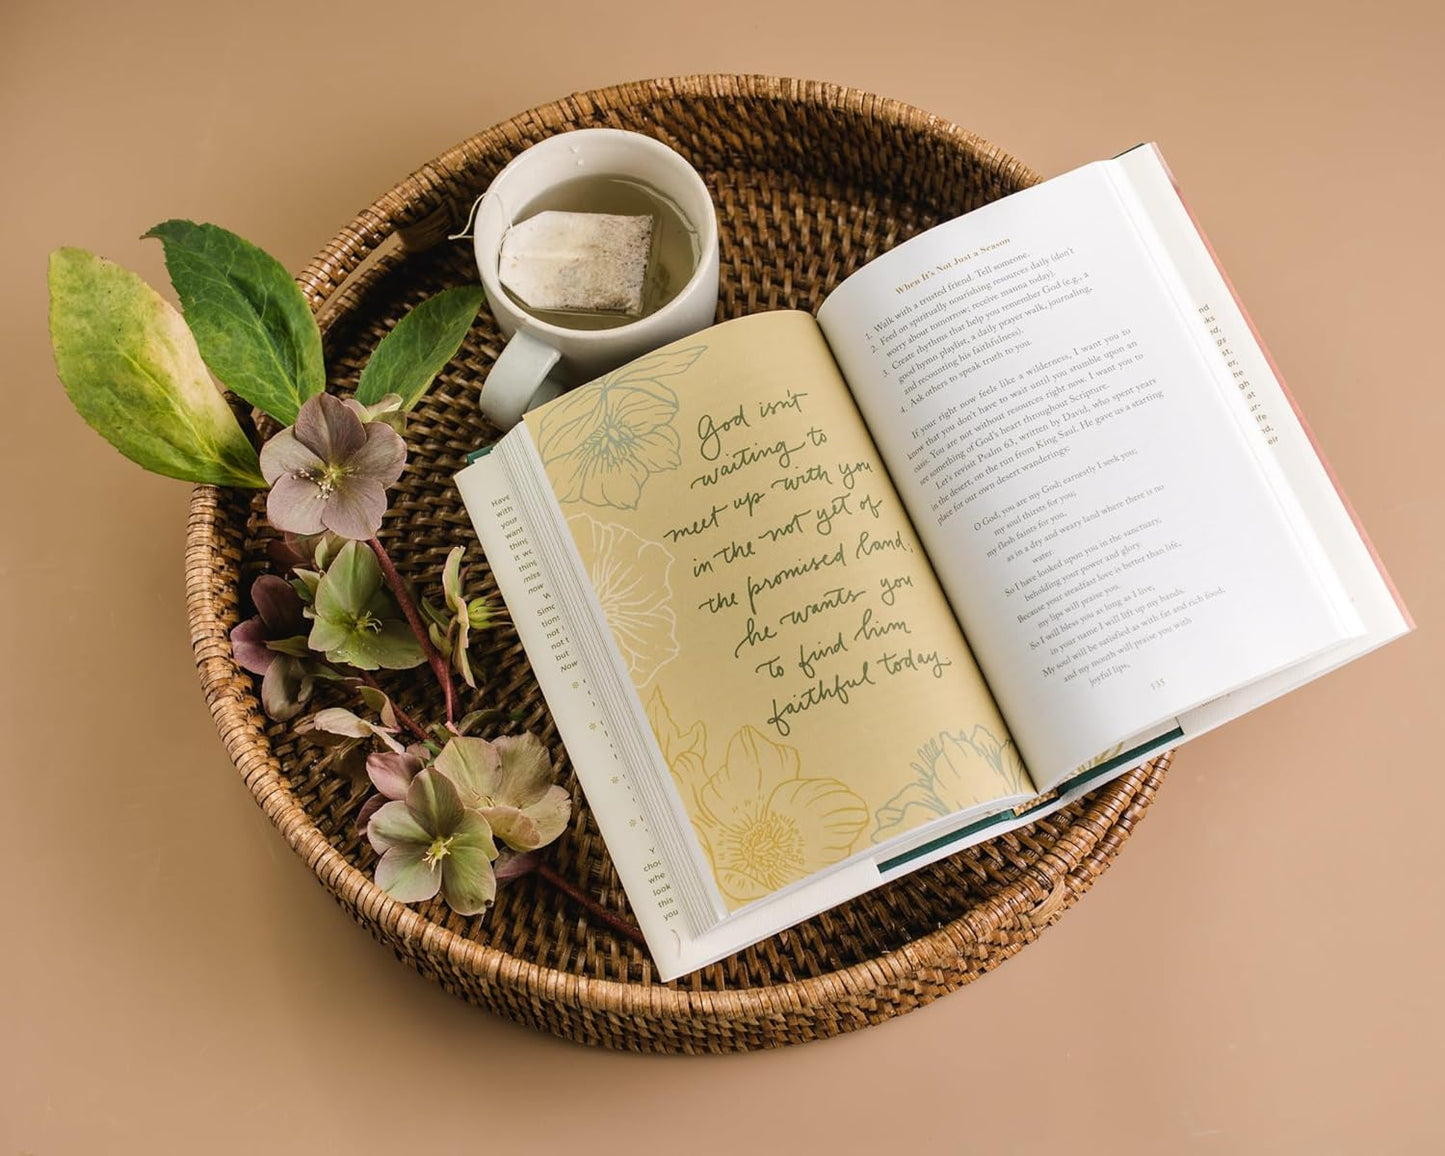 Have
with
your
want
thing
it wo
thing
miss
now
W
Simo
tion:
not f
not t
but
Now
Y
choo
whe
look
this
you
God isn't
waiting to
meet up with you
in the not yet of
the promised land,
he wants you
to find him
faithful today
When It's Not Just a Season
1. Walk with a trusted friend. Tell someone.
2. Feed on spiritually nourishing resources daily (don't
worry about tomorrow; receive manna today).
3. Create rhythms that help you remember God (e.g., a
good hymn playlist, a daily prayer walk, journaling,
and recounting his faithfulness).
4. Ask others to speak truth to you.
If your right now feels like a wilderness, I want you to
know that you don't have to wait until you stumble upon an
oasis. You are not without resources right now. I want you to
see something of God's heart throughout Scripture.
Let's revisit Psalm 63, written by David, who spent years
in the desert, on the run from King Saul. He gave us a starting
place for our own desert wanderings:
O God, you are my God; earnestly I seek you;
my soul thirsts for you;
my flesh faints for you,
as in a dry and weary land where there is no
water.
So I have looked upon you in the sanctuary,
beholding your power and glory.
Because your steadfast love is better than life,
my lips will praise you.
So I will bless you as long as I live;
in your name I will lift up my hands.
My soul will be satisfied as with fat and rich food,
and my mouth will praise you with
joyful lips,
135